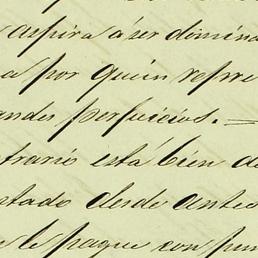 aspira á ser domina
a por quien repre
andes perjuicios. —
trario está bien de
tado desde antes
le pague con pun